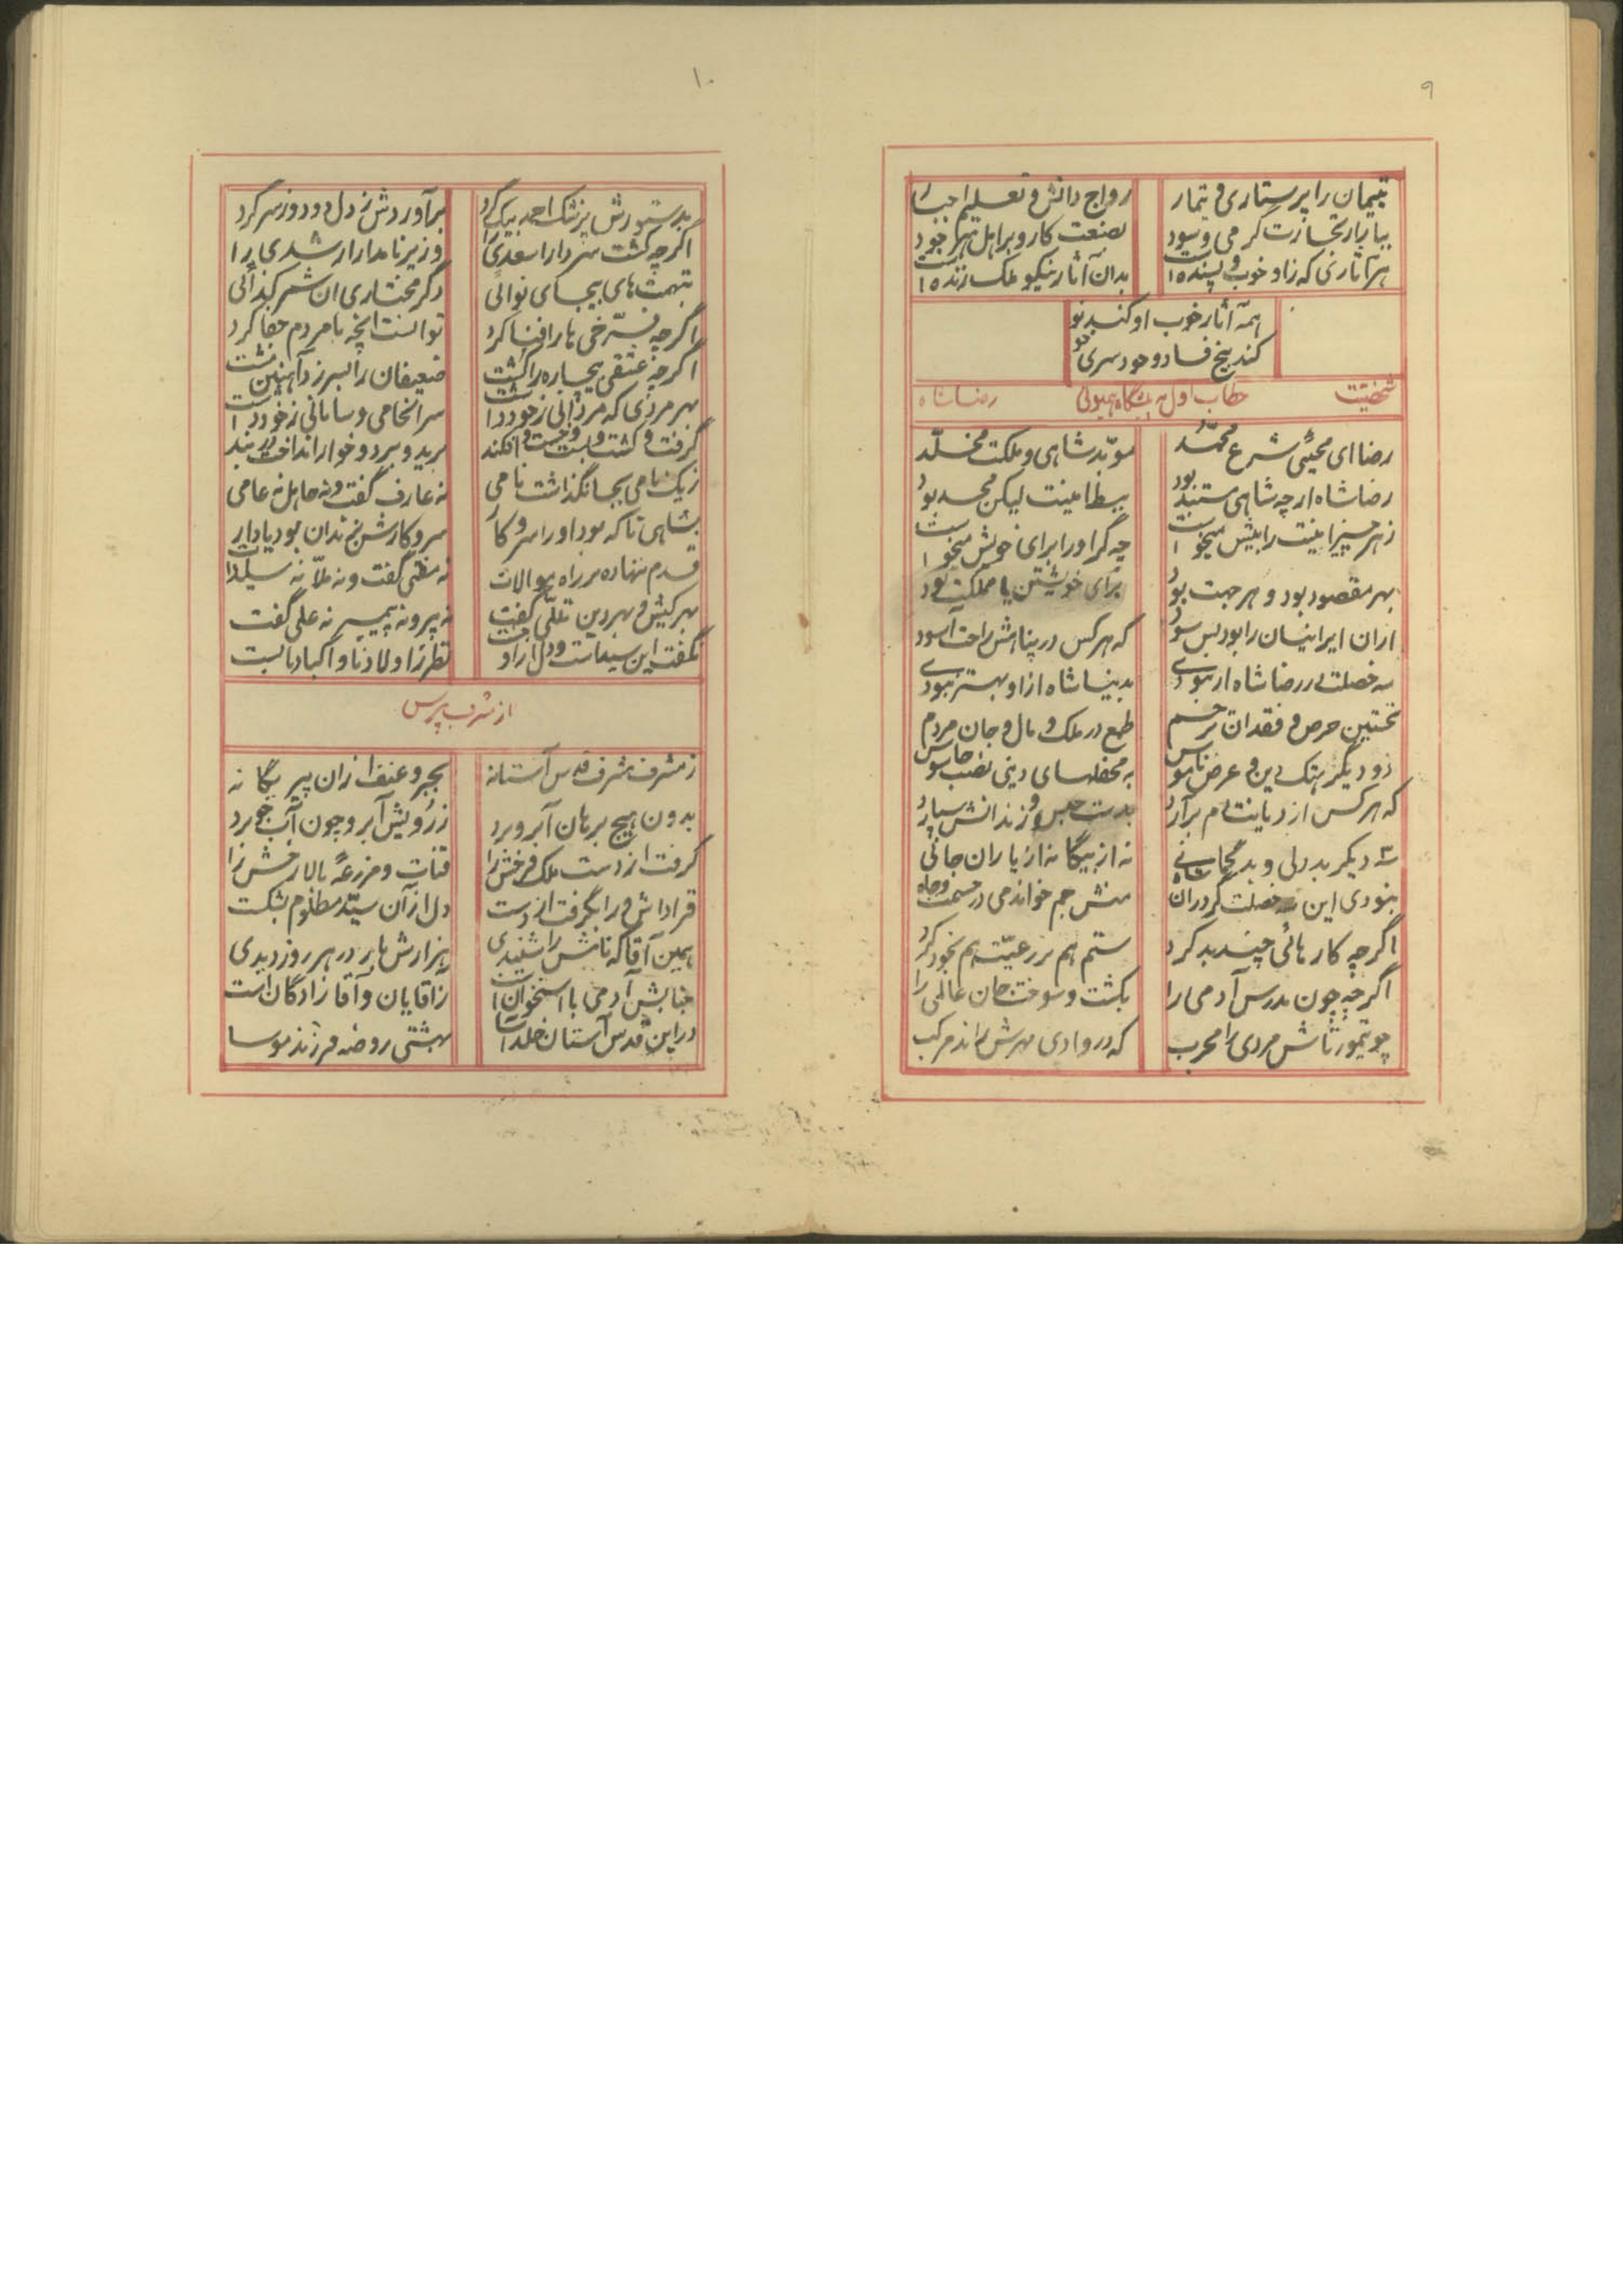 ۹
یتیمان را پرستاری و تیمار
رواج دانش و تعلیم اجبار
ببازار تجارت گرمی و سود
بصنعت کار و بر اهل هنر جود
هر آثاری که زاو خوب و پسنده است
بدان آثار نیکو ملک زنده است
همه آثار خوب او کند نو
کند بیخ فساد و خودسری دو
شخصیت رضا شاه
خطاب اول به پیشگاه همیونی
رضا ای محیی شرع محمد
مؤبد شاهی و ملکت مخلد
رضا شاه ار چه شاهی مستبد بود
بی‌نظامیت لیکن مجد بود
ز هر چیز امنیت را بیش میخواست
چه گر او را برای خویش میخواست
بهر مقصود بود و هر جهت بود
برای خویشتن یا مملکت بود
از آن ایرانیان را بود بس سود
که هر کس در پناهش راحت آسود
سه خصلت در رضا شاه ار نبودی
بدنیا شاه از او بهتر نبودی
نخستین حرص و فقدان ترحم
طمع در ملک و مال و جان مردم
دو دیگر هتک دین و عرض و ناموس
به محفلهای دینی نصب جاسوس
که هر کس از دیانت دم برآرد
بدست حبس و زندانش سپارد
سه دیگر بددلی و بدگمانی
نه از بیگانه از یاران جانی
نبودی این سه خصلت گر در آن شاه
منش جم خواندمی در حشمت و جاه
اگر چه کارهائی چند بد کرد
ستم هم بر رعیت هم بخود کرد
اگر چه چون مدرس آدمی را
بکشت و سوخت جان عالمی را
چو تیمورتاش مردی را مجرب
که در وادی مهرش راند مرکب
۱۰
بدستورش پزشک احمد بیک کرد
برآوردش ز دل دود و ز سر گرد
اگر چه کشت سردار اسعدی را
وزیر نامدار ارشدی را
بتهمت‌های بیجای نوائی
دگر مختاری آن شمر کذائی
اگر چه فرخی‌ها را فنا کرد
توانست آنچه با مردم جفا کرد
اگر چه عشقی بیچاره را کشت
ضعیفان را بسر زد آهنین مشت
بهر مرزی که مرزبانی ز خود داشت
سرانجامی و سامانی ز خود داشت
گرفت و کشت و بست و خست و افکند
برید و برد و خوار انداخت در بند
ز یک نامی بجا نگذاشت نامی
نه عارف گفت و نه جاهل نه عامی
بشاهی تا که بود او را سر و کار
سر و کارش بزندان بود یا دار
قدم ننهاده بر راه موالات
نه مفتی گفت و نه ملا نه سیدات
بهر کیش و بهر دین تقلی گفت
نه پیر و نه پیمبر نه علی گفت
نگفت این سید است و دل از او جست
نظر ز اولاد نا و اکبادنا بست
از مشرف بپرس
ز مشرف مشرف قدس آستانه
بجبر و عنف از آن پیر یگانه
بدون هیچ برهان آبرو برد
ز رویش آبرو چون آب جو برد
گرفت از دست ملک فرخش را
قنات و مزرعه بالا رخش را
قراداش ورا بگرفت از دست
دل از آن سید مظلوم بشکست
همین آقا که نامش را شنیدی
هزارش بار در هر روز دیدی
جنابش آدمی با استخوان است
ز آقایان و آقا زادگان است
در این قدس آستان خلد آسا
بهشتی روضه فرزند موسا